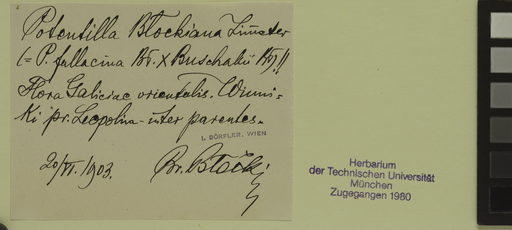 Potentilla Błockiana Zimeter
(= P. fallacina Bł. X Buschakii Bł.)!!
Flora Galiciae orientalis. Winni-
ki pr. Leopolim - inter parentes.
I. DÖRFLER, WIEN
20/VI. 1903. Br. Błocki
Herbarium
der Technischen Universität
München
Zugegangen 1980